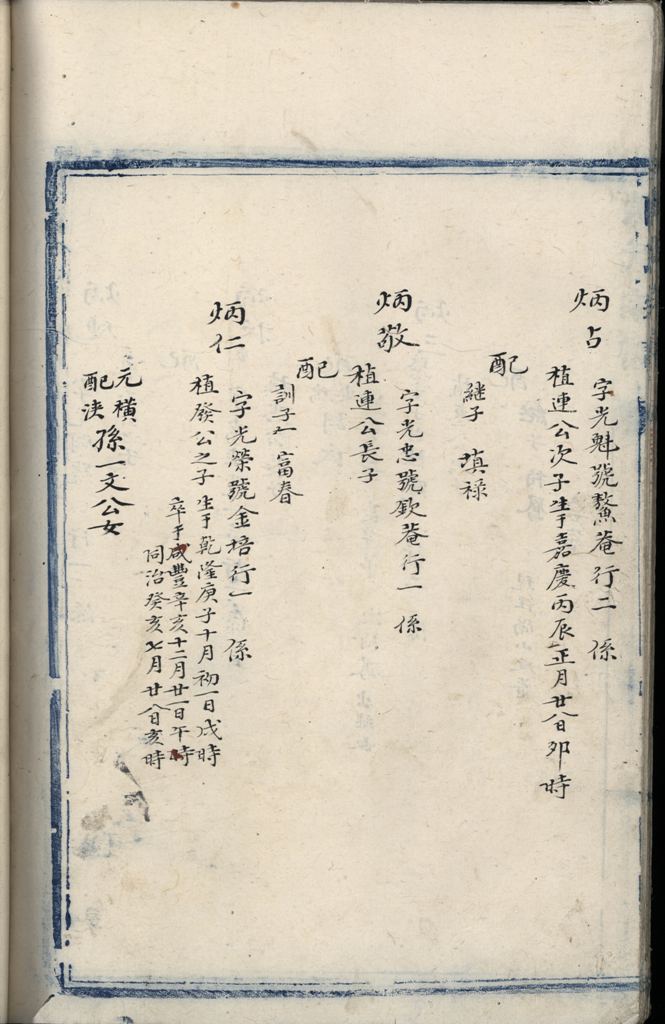 炳占
字光魁號鰲菴行二 係
植連公次子生于嘉慶丙辰正月廿八日卯時
配
継子 填禄
炳敬
字光忠號欽菴行一 係
植連公長子
配
訓子一 富春
炳仁
字光榮號金培行一 係
植發公之子 生于乾隆庚子十月初一日戌時
卒于咸豐辛亥十二月廿一日午時
同治癸亥七月廿八日亥時
元配
橫泆孫一文公女